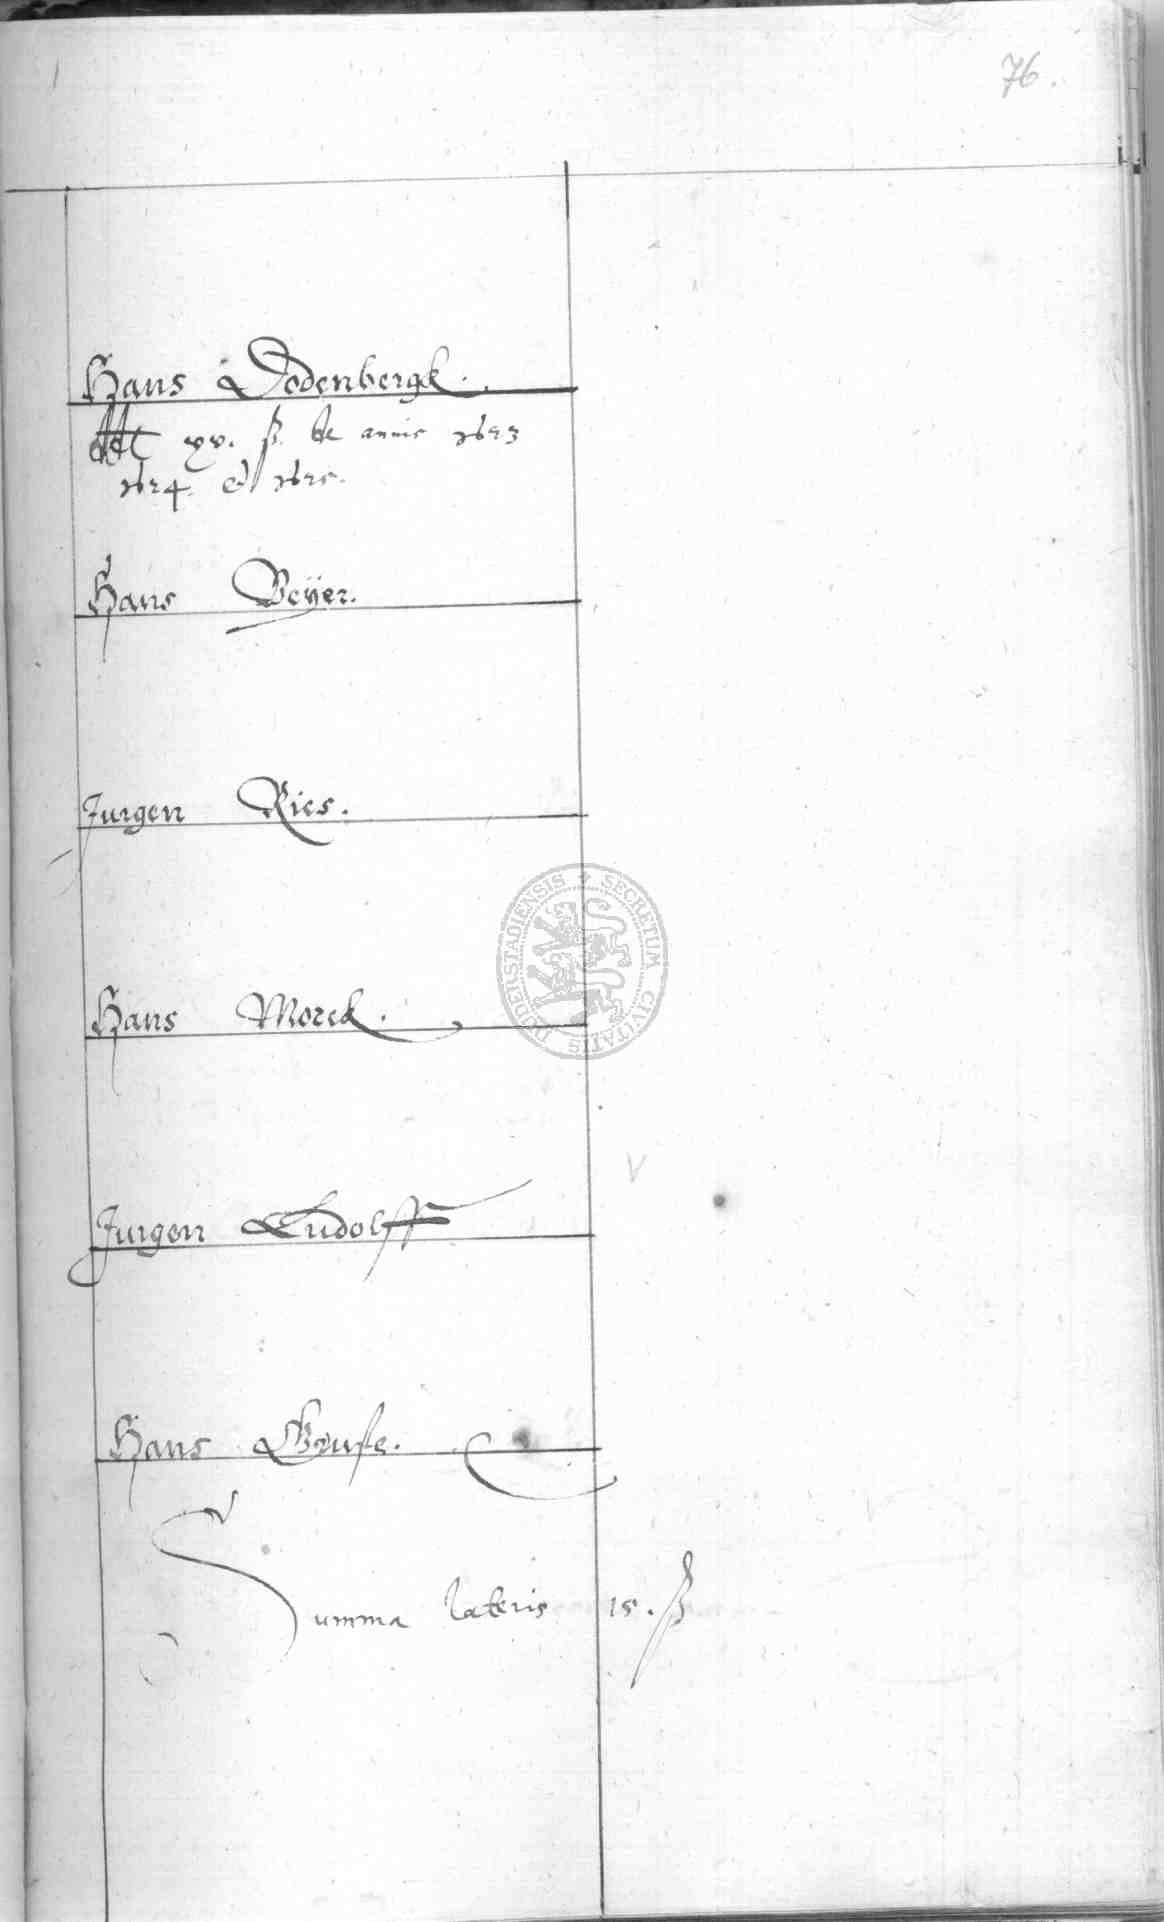 76.
Hans Dodenbergk.
dt xv. ß de annis 1623
1624. et 1625.
Hans Beÿer.
Jurgen Ries.
Hans Morck.
Jurgen Ludolff
Hans
Summa lateris 15. ß
SECRETUM CIVITATIS DUDERSTADIENSIS